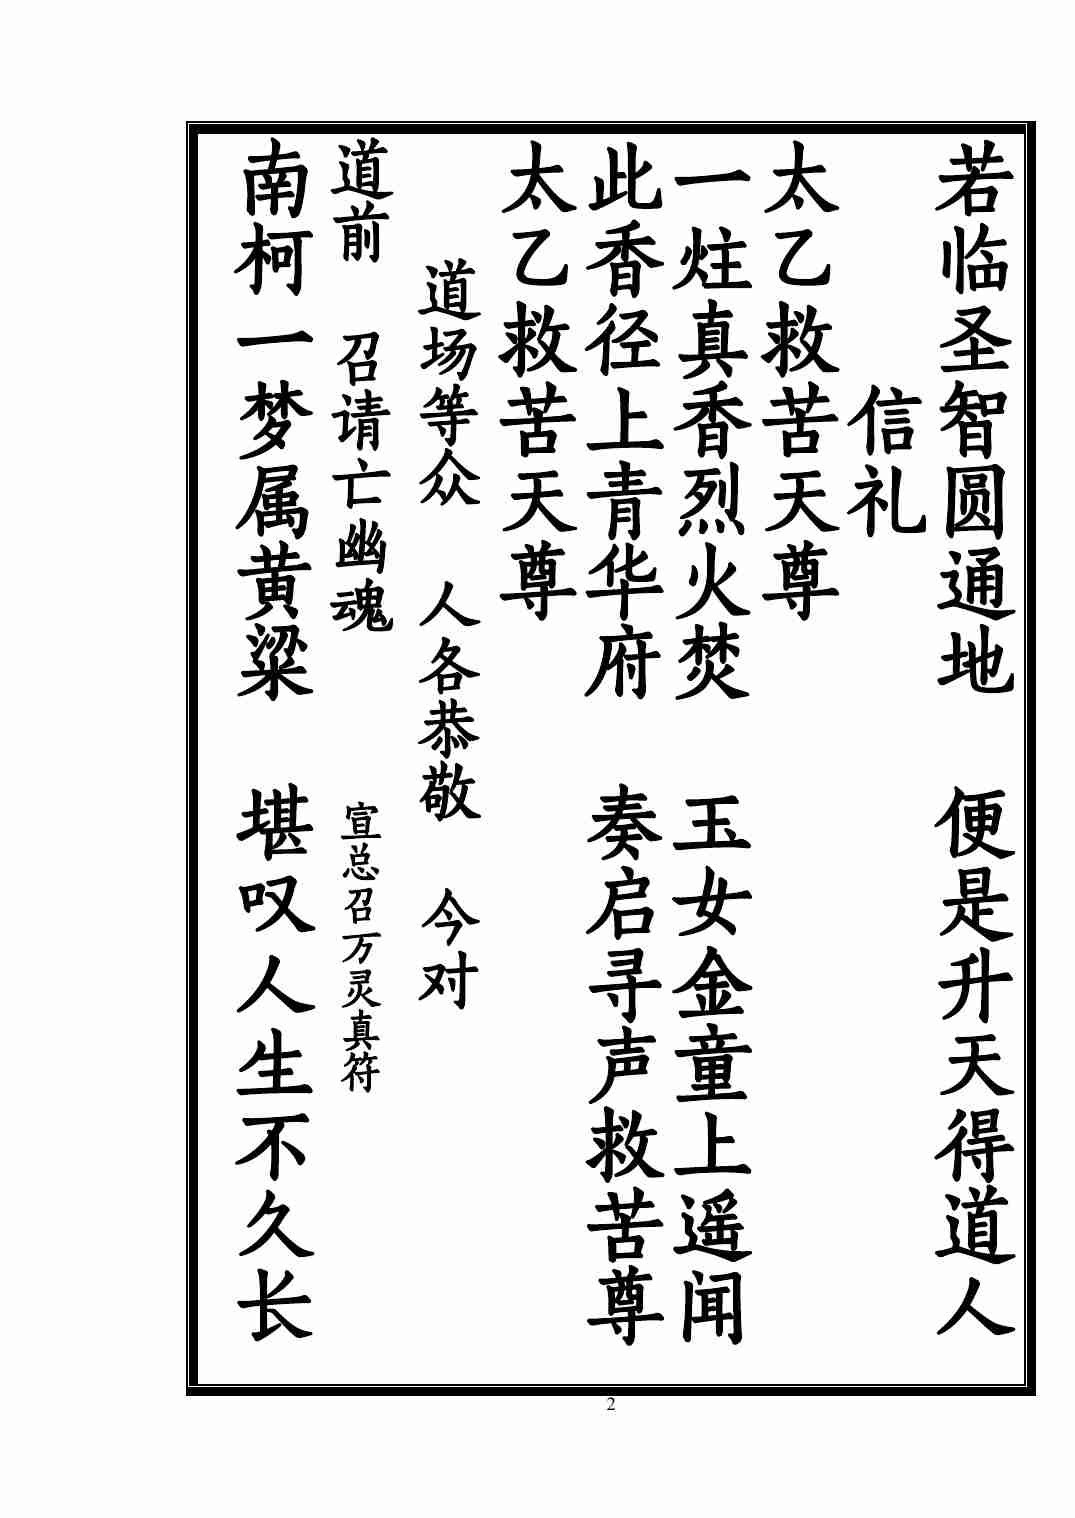 若临圣智圆通地　便是升天得道人
信礼
太乙救苦天尊
一炷真香烈火焚　玉女金童上遥闻
此香径上青华府　奏启寻声救苦尊
太乙救苦天尊
道场等众　人各恭敬　今对
道前　召请亡幽魂　宣总召万灵真符
南柯一梦属黄粱　堪叹人生不久长
2